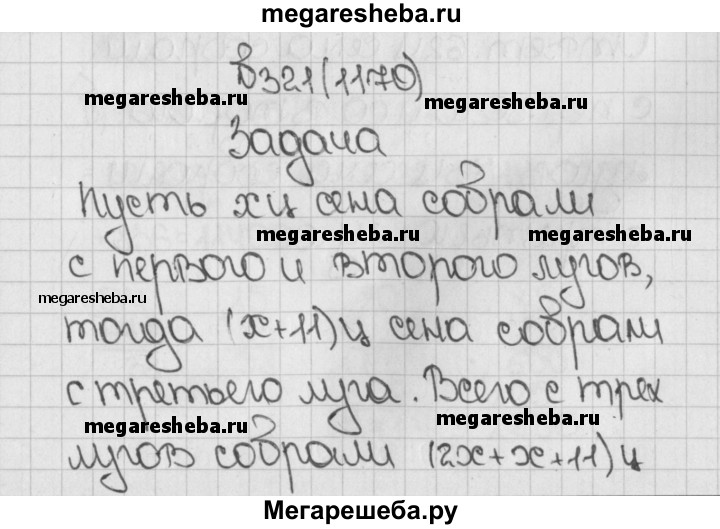 megaresheba.ru
В321(1170)
megaresheba.ru megaresheba.ru
Задача
Пусть х ц сена собрали
megaresheba.ru megaresheba.ru
с первого и второго лугов,
megaresheba.ru
тогда (х+11) ц сена собрали
с третьего луга. Всего с трех
megaresheba.ru megaresheba.ru
лугов собрали (2х+х+11) ц
Мегарешеба.ру